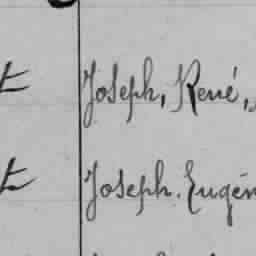 Joseph, René,
Joseph. Eugén